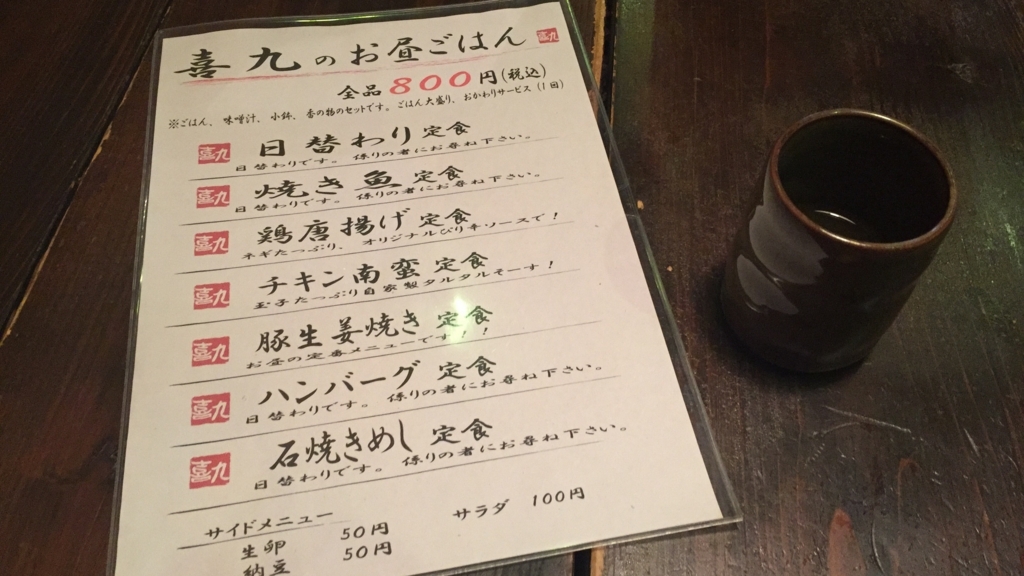 喜九のお昼ごはん 喜九
全品800円(税込)
※ごはん、味噌汁、小鉢、香の物のセットです。ごはん大盛り、おかわりサービス(1回)
喜九 日替わり定食
日替わりです。係りの者にお尋ね下さい。
喜九 焼き魚定食
日替わりです。係りの者にお尋ね下さい。
喜九 鶏唐揚げ定食
ネギたっぷり、オリジナルぴり辛ソースで!
喜九 チキン南蛮定食
玉子たっぷり自家製タルタルそーす!
喜九 豚生姜焼き定食
お昼の定番メニューです!!
喜九 ハンバーグ定食
日替わりです。係りの者にお尋ね下さい。
喜九 石焼きめし定食
日替わりです。係りの者にお尋ね下さい。
サイドメニュー
生卵 50円 サラダ 100円
納豆 50円